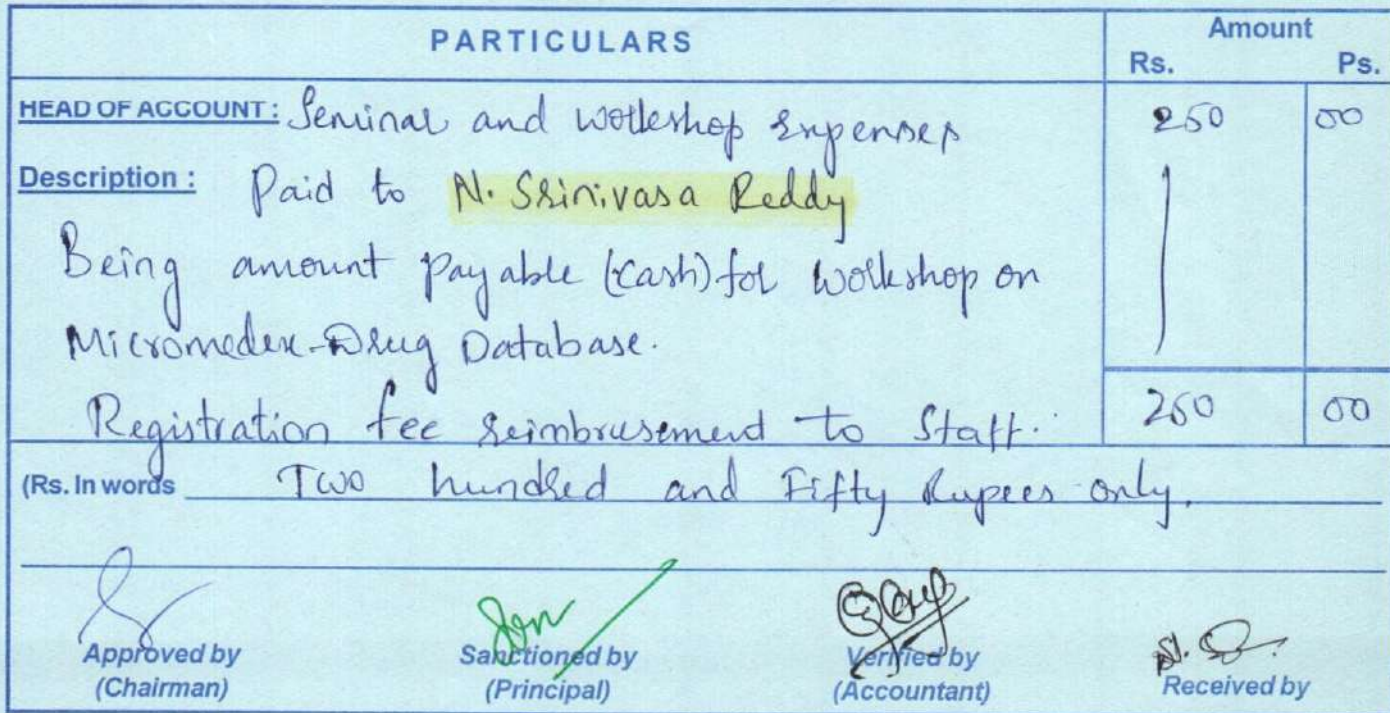 PARTICULARS Amount
Rs. Ps.
HEAD OF ACCOUNT: Seminar and workshop expenses 250 00
Description: Paid to N. Srinivasa Reddy
Being amount payable (cash) for workshop on
Micromedex-Drug Database.
Registration fee reimbrusement to Staff. 250 00
(Rs. In words Two hundred and Fifty Rupees only.
Approved by Sanctioned by Verified by Received by
(Chairman) (Principal) (Accountant)